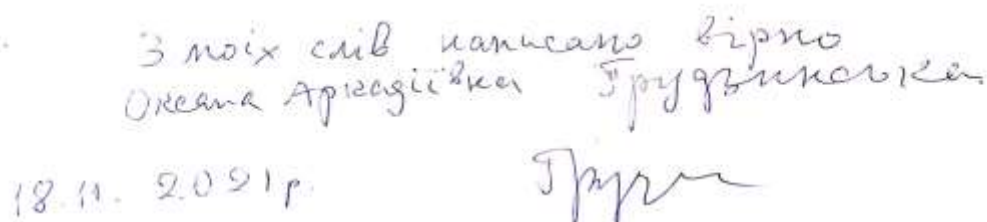 З моїх слів написано вірно
Оксана Аркадіївна Грудзинська
18.11.2021р.